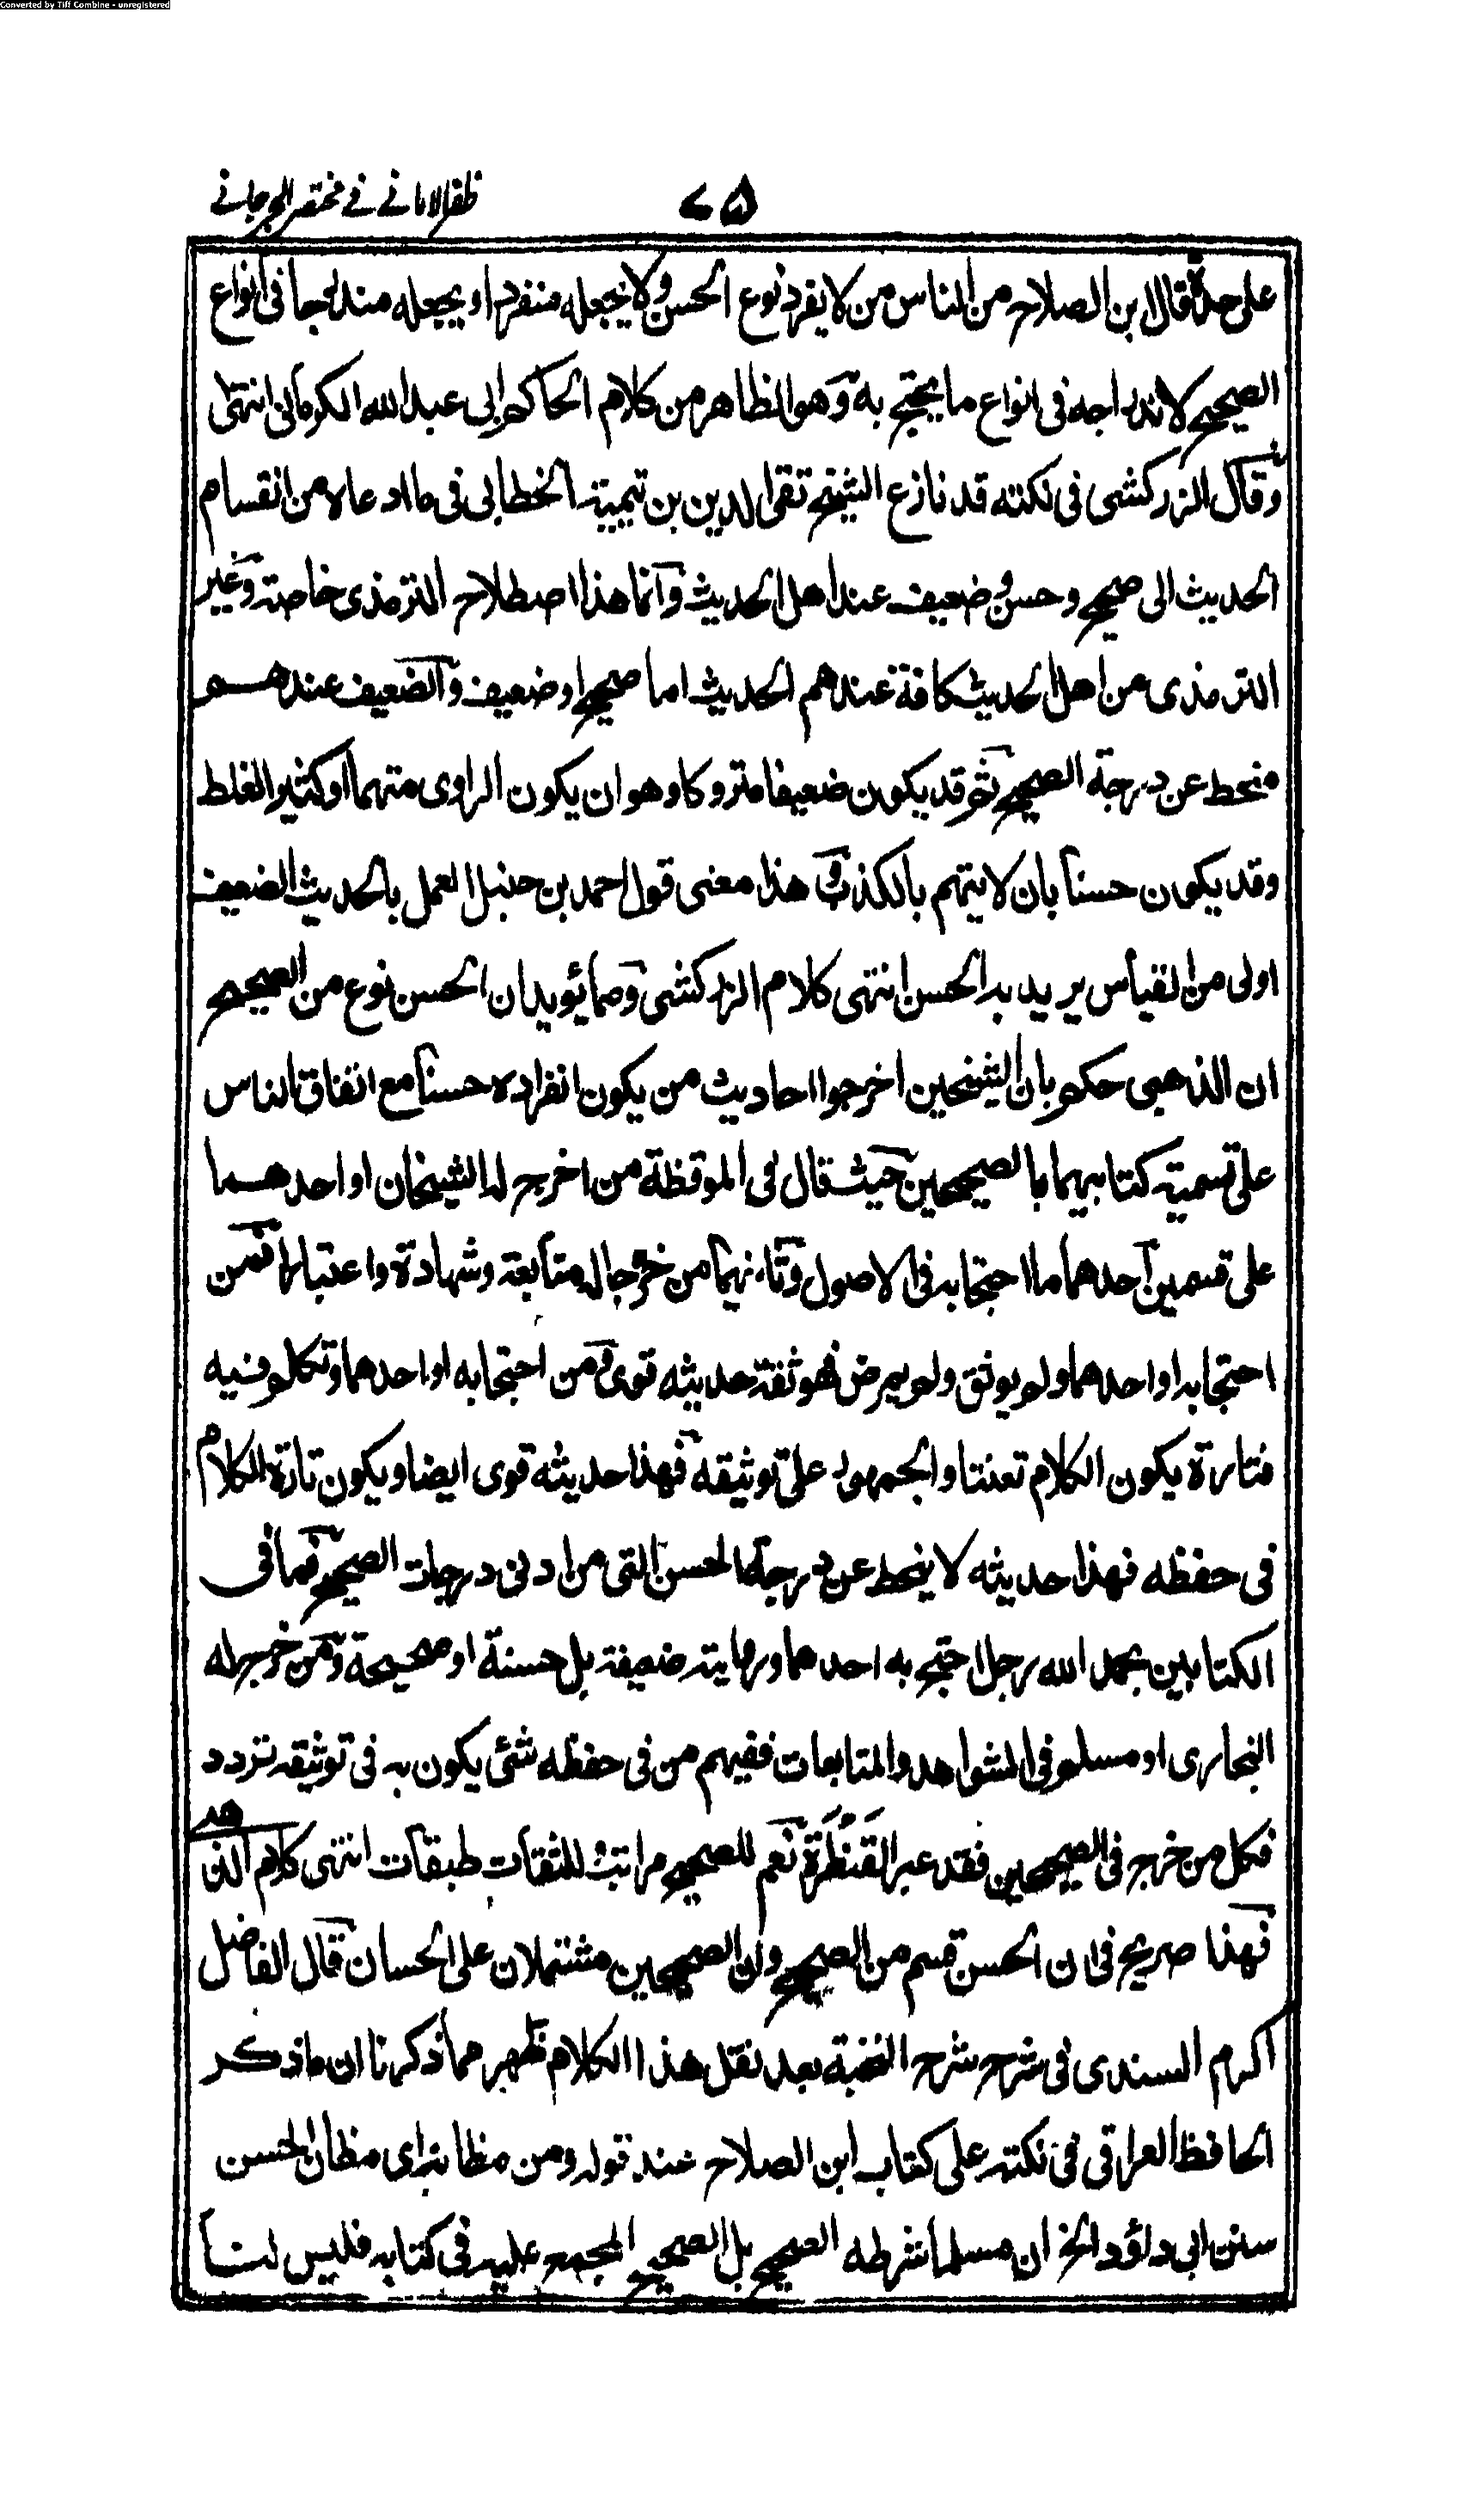 Converted by Tiff Combine - unregistered
ظفر الامانے نے مختصر الجرجانے
٧٥
على حدة قال ابن الصلاح من الناس من لا يفرد نوع الحسن ولا يجعله منفردا ويجعله مندرجا فى انواع
الصحيح لاندراجه فى انواع ما يحتج به وهو الظاهر من كلام الحاكم ابى عبد الله الكرمانى انتهى
وقال الزركشى فى نكته قد نازع الشيخ تقى الدين بن تيمية الخطابى فى ما ادعاه من انقسام
الحديث الى صحيح وحسن وضعيف عند اهل الحديث وانما هذا اصطلاح الترمذى خاصة وغير
الترمذى من اهل الحديث كافة عندهم الحديث اما صحيح او ضعيف والضعيف عندهم
منحط عن درجة الصحيح ثم قد يكون ضعيفا متروكا وهو ان يكون الراوى متهما او كثير الغلط
وقد يكون حسنا بان لا يتهم بالكذب هذا معنى قول احمد بن حنبل العمل بالحديث الضعيف
اولى من القياس يريد به الحسن انتهى كلام الزركشى ومما يؤيد ان الحسن نوع من الصحيح
ان الذهبى حكم بان الشيخين اخرجوا احاديث من يكون انفراده حسنا مع اتفاق الناس
على تسمية كتابيهما بالصحيحين حيث قال فى الموقظة من اخرج له الشيخان او احدهما
على قسمين احدهما ما احتجا به فى الاصول وثانيهما من خرجا له متابعة وشهادة واعتبارا فمن
احتجا به او احدهما ولم يوثق ولم يمرض فهو ثقة حديثه قوى ومن احتجا به او احدهما وتكلم فيه
فتارة يكون الكلام تعنتا والجمهور على توثيقه فهذا حديثه قوى ايضا ويكون تارة الكلام
فى حفظه فهذا حديثه لا ينحط عن درجة الحسن التى من ادنى درجات الصحيح فما فى
الكتابين بحمد الله رجل احتج به احدهما ورواية ضعيفة بل حسنة او صحيحة ومن خرج له
البخارى او مسلم فى الشواهد والمتابعات ففيهم من فى حفظه شئى يكون به فى توثيقه تردد
فكل من خرج فى الصحيحين فقد عبر القَنْطَرَةَ نعم للصحيح مراتب للثقات طبقات انتهى كلام الذهبى
فهذا صريح فى ان الحسن قسم من الصحيح وان الصحيحين مشتملان على الحسان قال الفاضل
اكرم السندى فى شرح شرح النخبة بعد نقل هذا الكلام ظهر مما ذكرنا ان ما ذكر
الحافظ العراقى فى نكته على كتاب ابن الصلاح عند قوله ومن مظانه اى مظان الحسن
سنن ابى داؤد الخ ان مسلما شرطه الصحيح بل الصحيح المجمع عليه فى كتابه فليس لنا